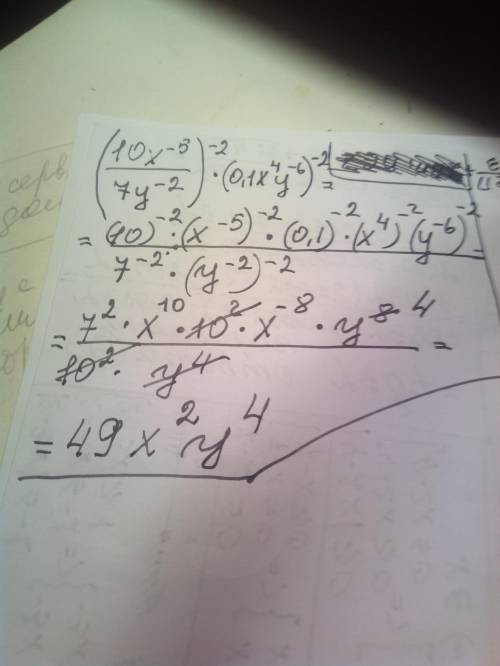 (10x⁻⁵/7y⁻²)⁻² · (0,1x⁴y⁻⁶)⁻² =
= (10)⁻² · (x⁻⁵)⁻² · (0,1)⁻² · (x⁴)⁻² (y⁻⁶)⁻² / 7⁻² · (y⁻²)⁻² =
= 7² · x¹⁰ · 10² · x⁻⁸ · y⁸ ⁴ / 10² · y⁴ =
= 49x²y⁴